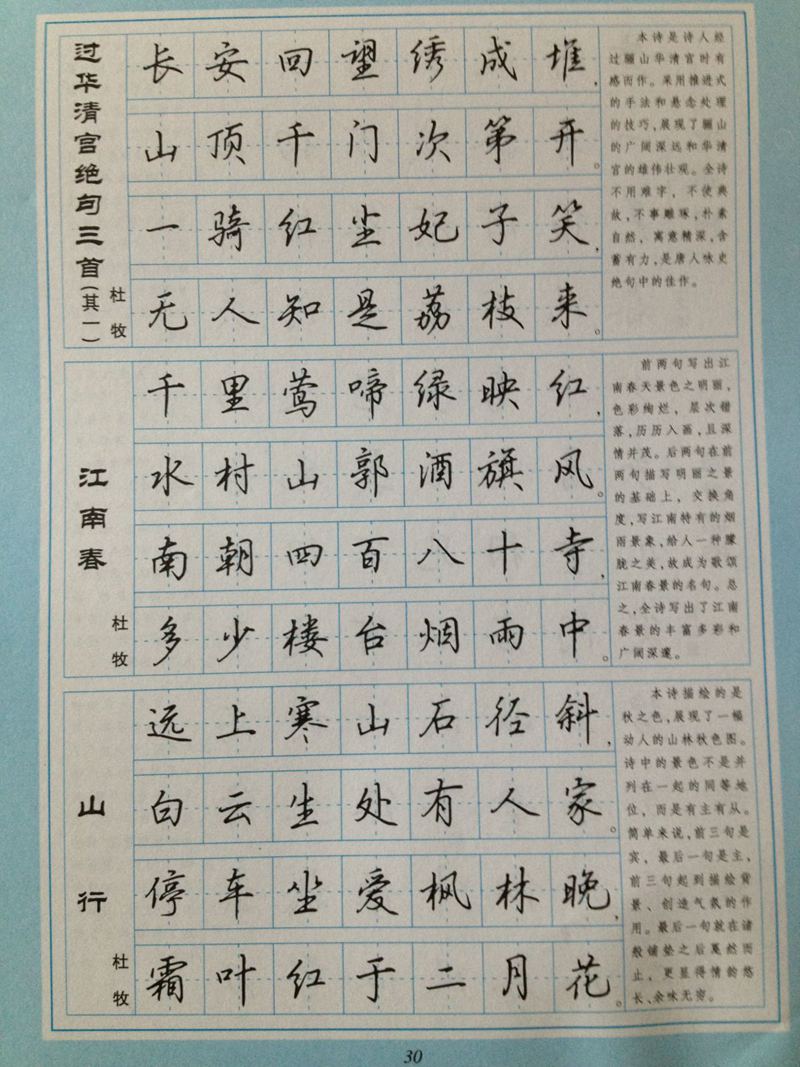 过华清宫绝句三首(其一)
杜牧
长安回望绣成堆,
山顶千门次第开。
一骑红尘妃子笑,
无人知是荔枝来。
本诗是诗人经
过骊山华清宫时有
感而作。采用推进式
的手法和悬念处理
的技巧,展现了骊山
的广阔深远和华清
宫的雄伟壮观。全诗
不用难字,不使典
故,不事雕琢,朴素
自然,寓意精深,含
蓄有力,是唐人咏史
绝句中的佳作。
江南春
杜牧
千里莺啼绿映红,
水村山郭酒旗风。
南朝四百八十寺,
多少楼台烟雨中。
前两句写出江
南春天景色之明丽,
色彩绚烂,层次错
落,历历入画,且深
情并茂。后两句在前
两句描写明丽之景
的基础上,交换角
度,写江南特有的烟
雨景象,给人一种朦
胧之美,故成为歌颂
江南春景的名句。总
之,全诗写出了江南
春景的丰富多彩和
广阔深邃。
山行
杜牧
远上寒山石径斜,
白云生处有人家。
停车坐爱枫林晚,
霜叶红于二月花。
本诗描绘的是
秋之色,展现了一幅
动人的山林秋色图。
诗中的景色不是并
列在一起的同等地
位,而是有主有从。
简单来说,前三句是
宾,最后一句是主,
前三句起到描绘背
景、创造气氛的作
用。最后一句就在诸
般铺垫之后戛然而
止,更显得情韵悠
长、余味无穷。
30